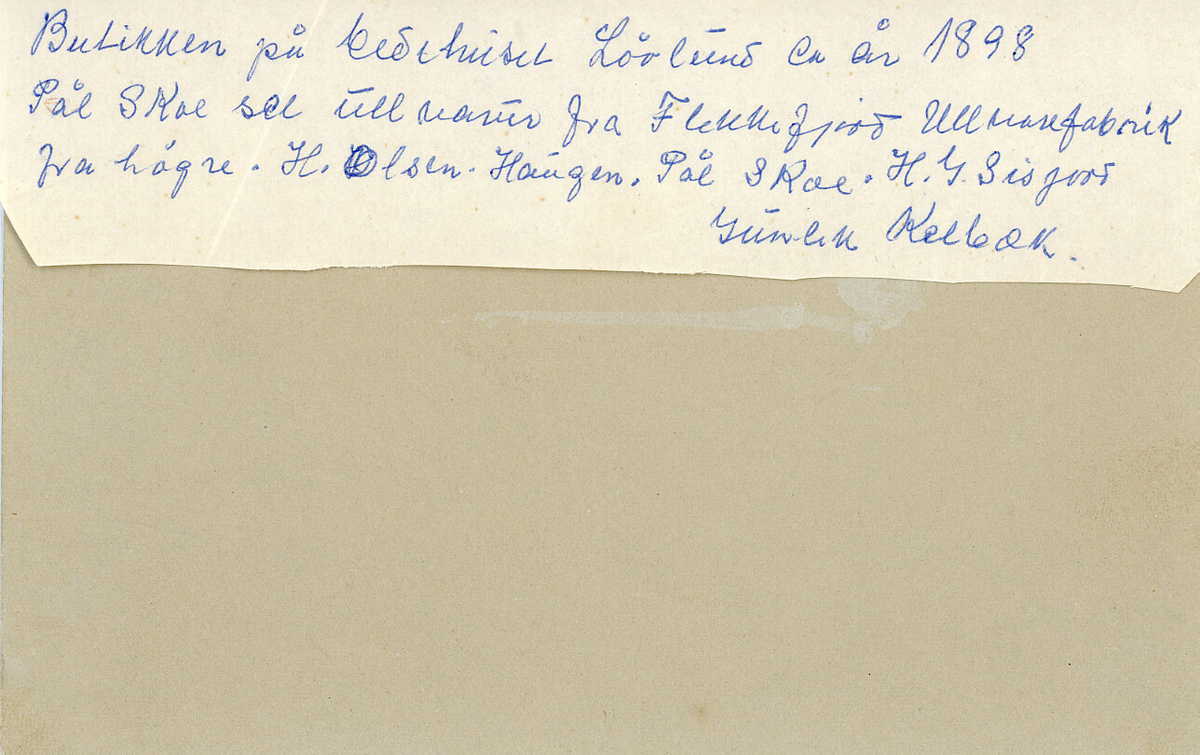 Butikken på bedehuset Lövlund ca år 1898
Pål Skoe sel ullvarur fra Flekkefjord Ullvarefabrik
fra högre. H. Olsen. Haugen. Pål Skoe. H.G. Sisjord
Gunlek Kelbæk.